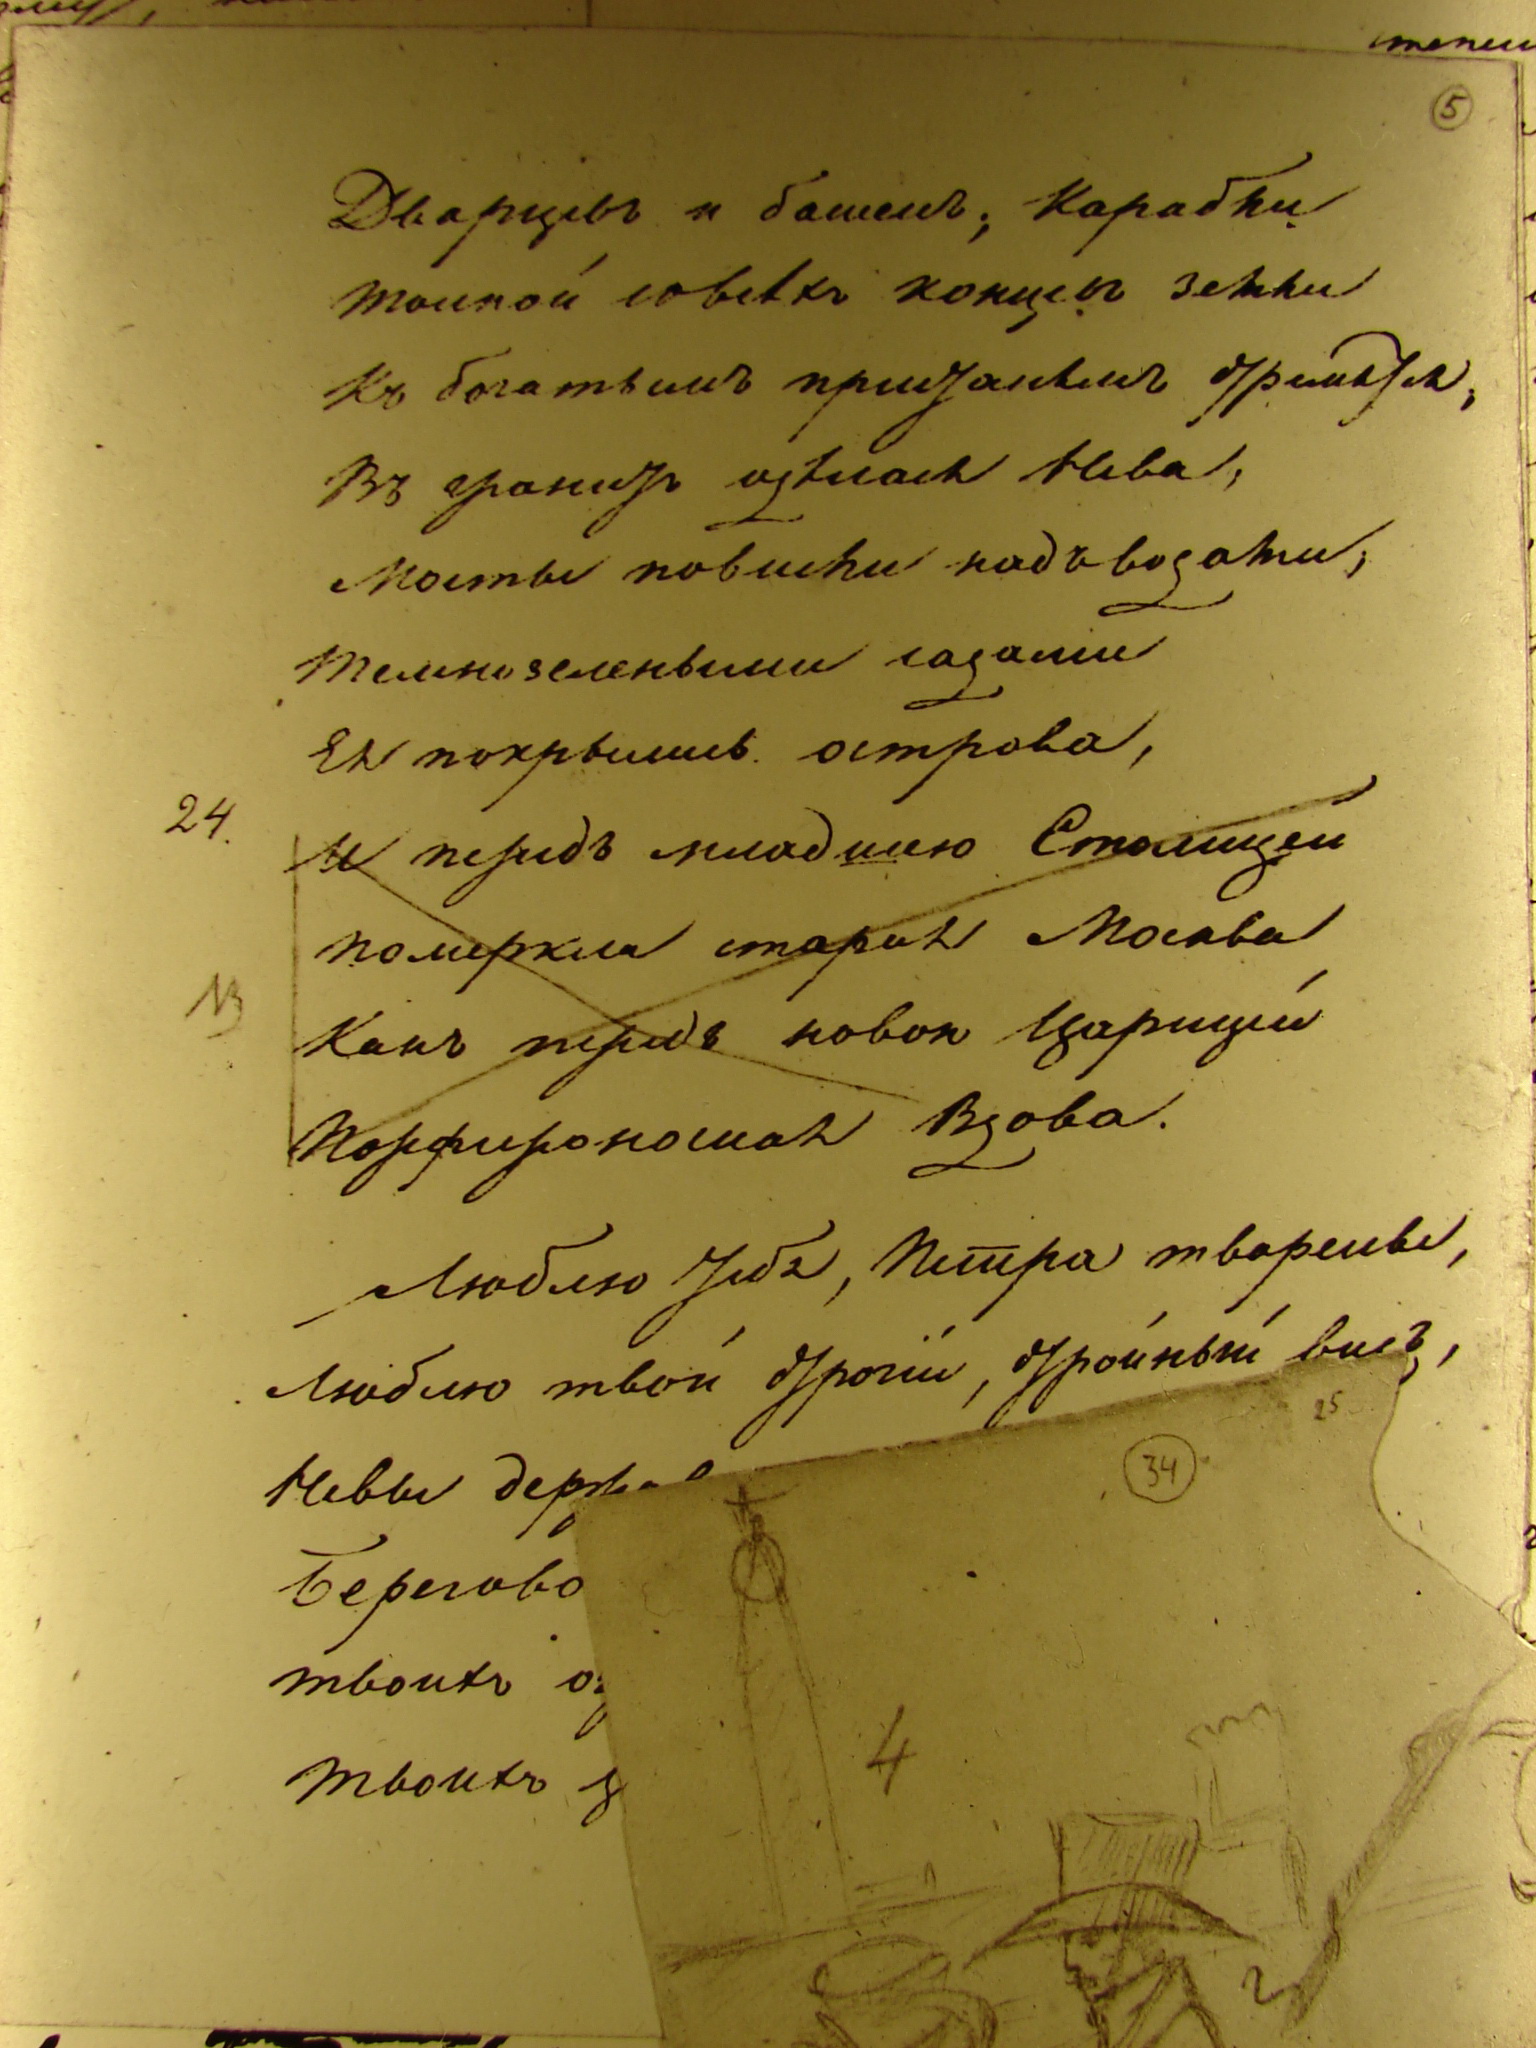 5
Дворцовъ и башенъ; Карабли
Толпой со всѣхъ концовъ земли
Къ богатымъ пристанямъ стремятся;
Въ гранитъ одѣлася Нева;
Мосты повисли надъ водами;
Темнозелеными садами
Ея покрылись острова,
24.
И передъ младшею Столицей
Померкла старая Москва
NB
Какъ передъ новой Царицей
Порфироносная Вдова.
Люблю тебя, Петра творенье,
Люблю твой строгій, стройный видъ,
Невы держав
Берегово
Твоихъ о
Твоихъ з
25
34
4
2